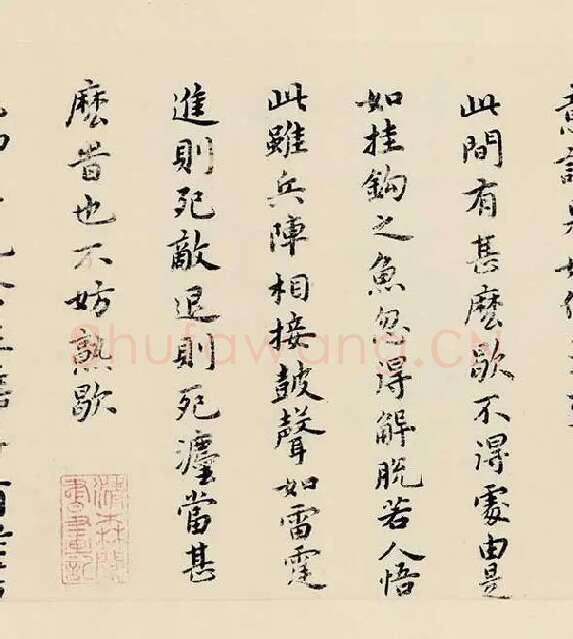 此間有甚麼歇不得處由是
如挂鈎之魚忽得解脫若人悟
此雖兵陣相接鼓聲如雷霆
進則死敵退則死灋當甚
麼旹也不妨熟歇
清森閣書畫記
Shufawang.CN